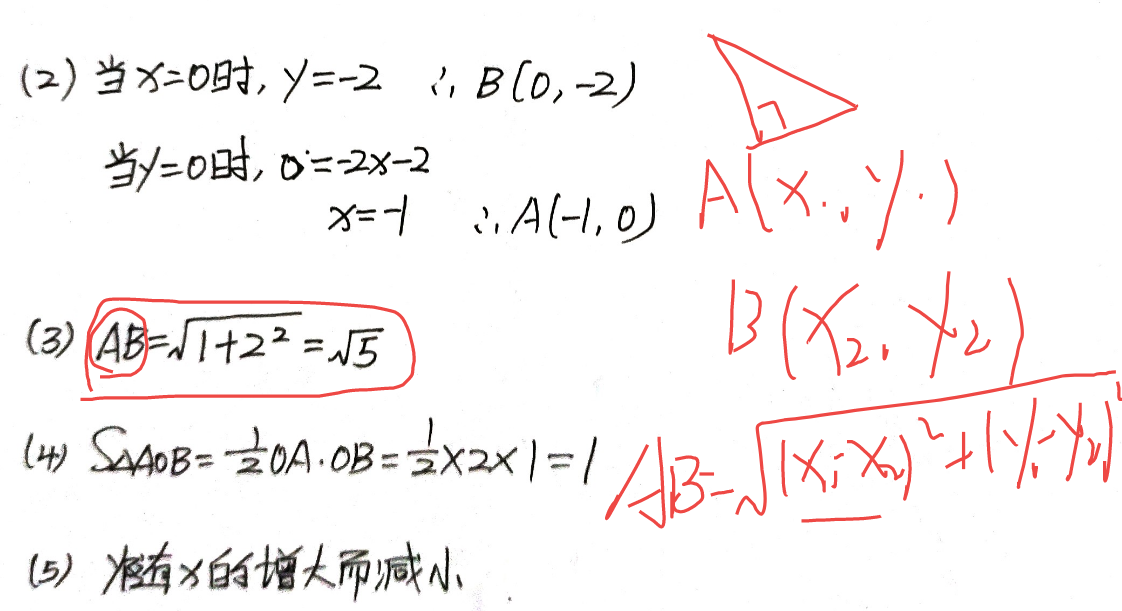 (2) 当x=0时, y=-2 ∴ B(0, -2)
当y=0时, 0=-2x-2
x=-1 ∴ A(-1, 0)
(3) AB=√1+2² =√5
(4) S△AOB= 1/2 OA·OB= 1/2 ×2×1=1
(5) y随着x的增大而减小
A(x₁, y₁)
B(x₂, y₂)
AB=√(x₁-x₂)²+(y₁-y₂)²